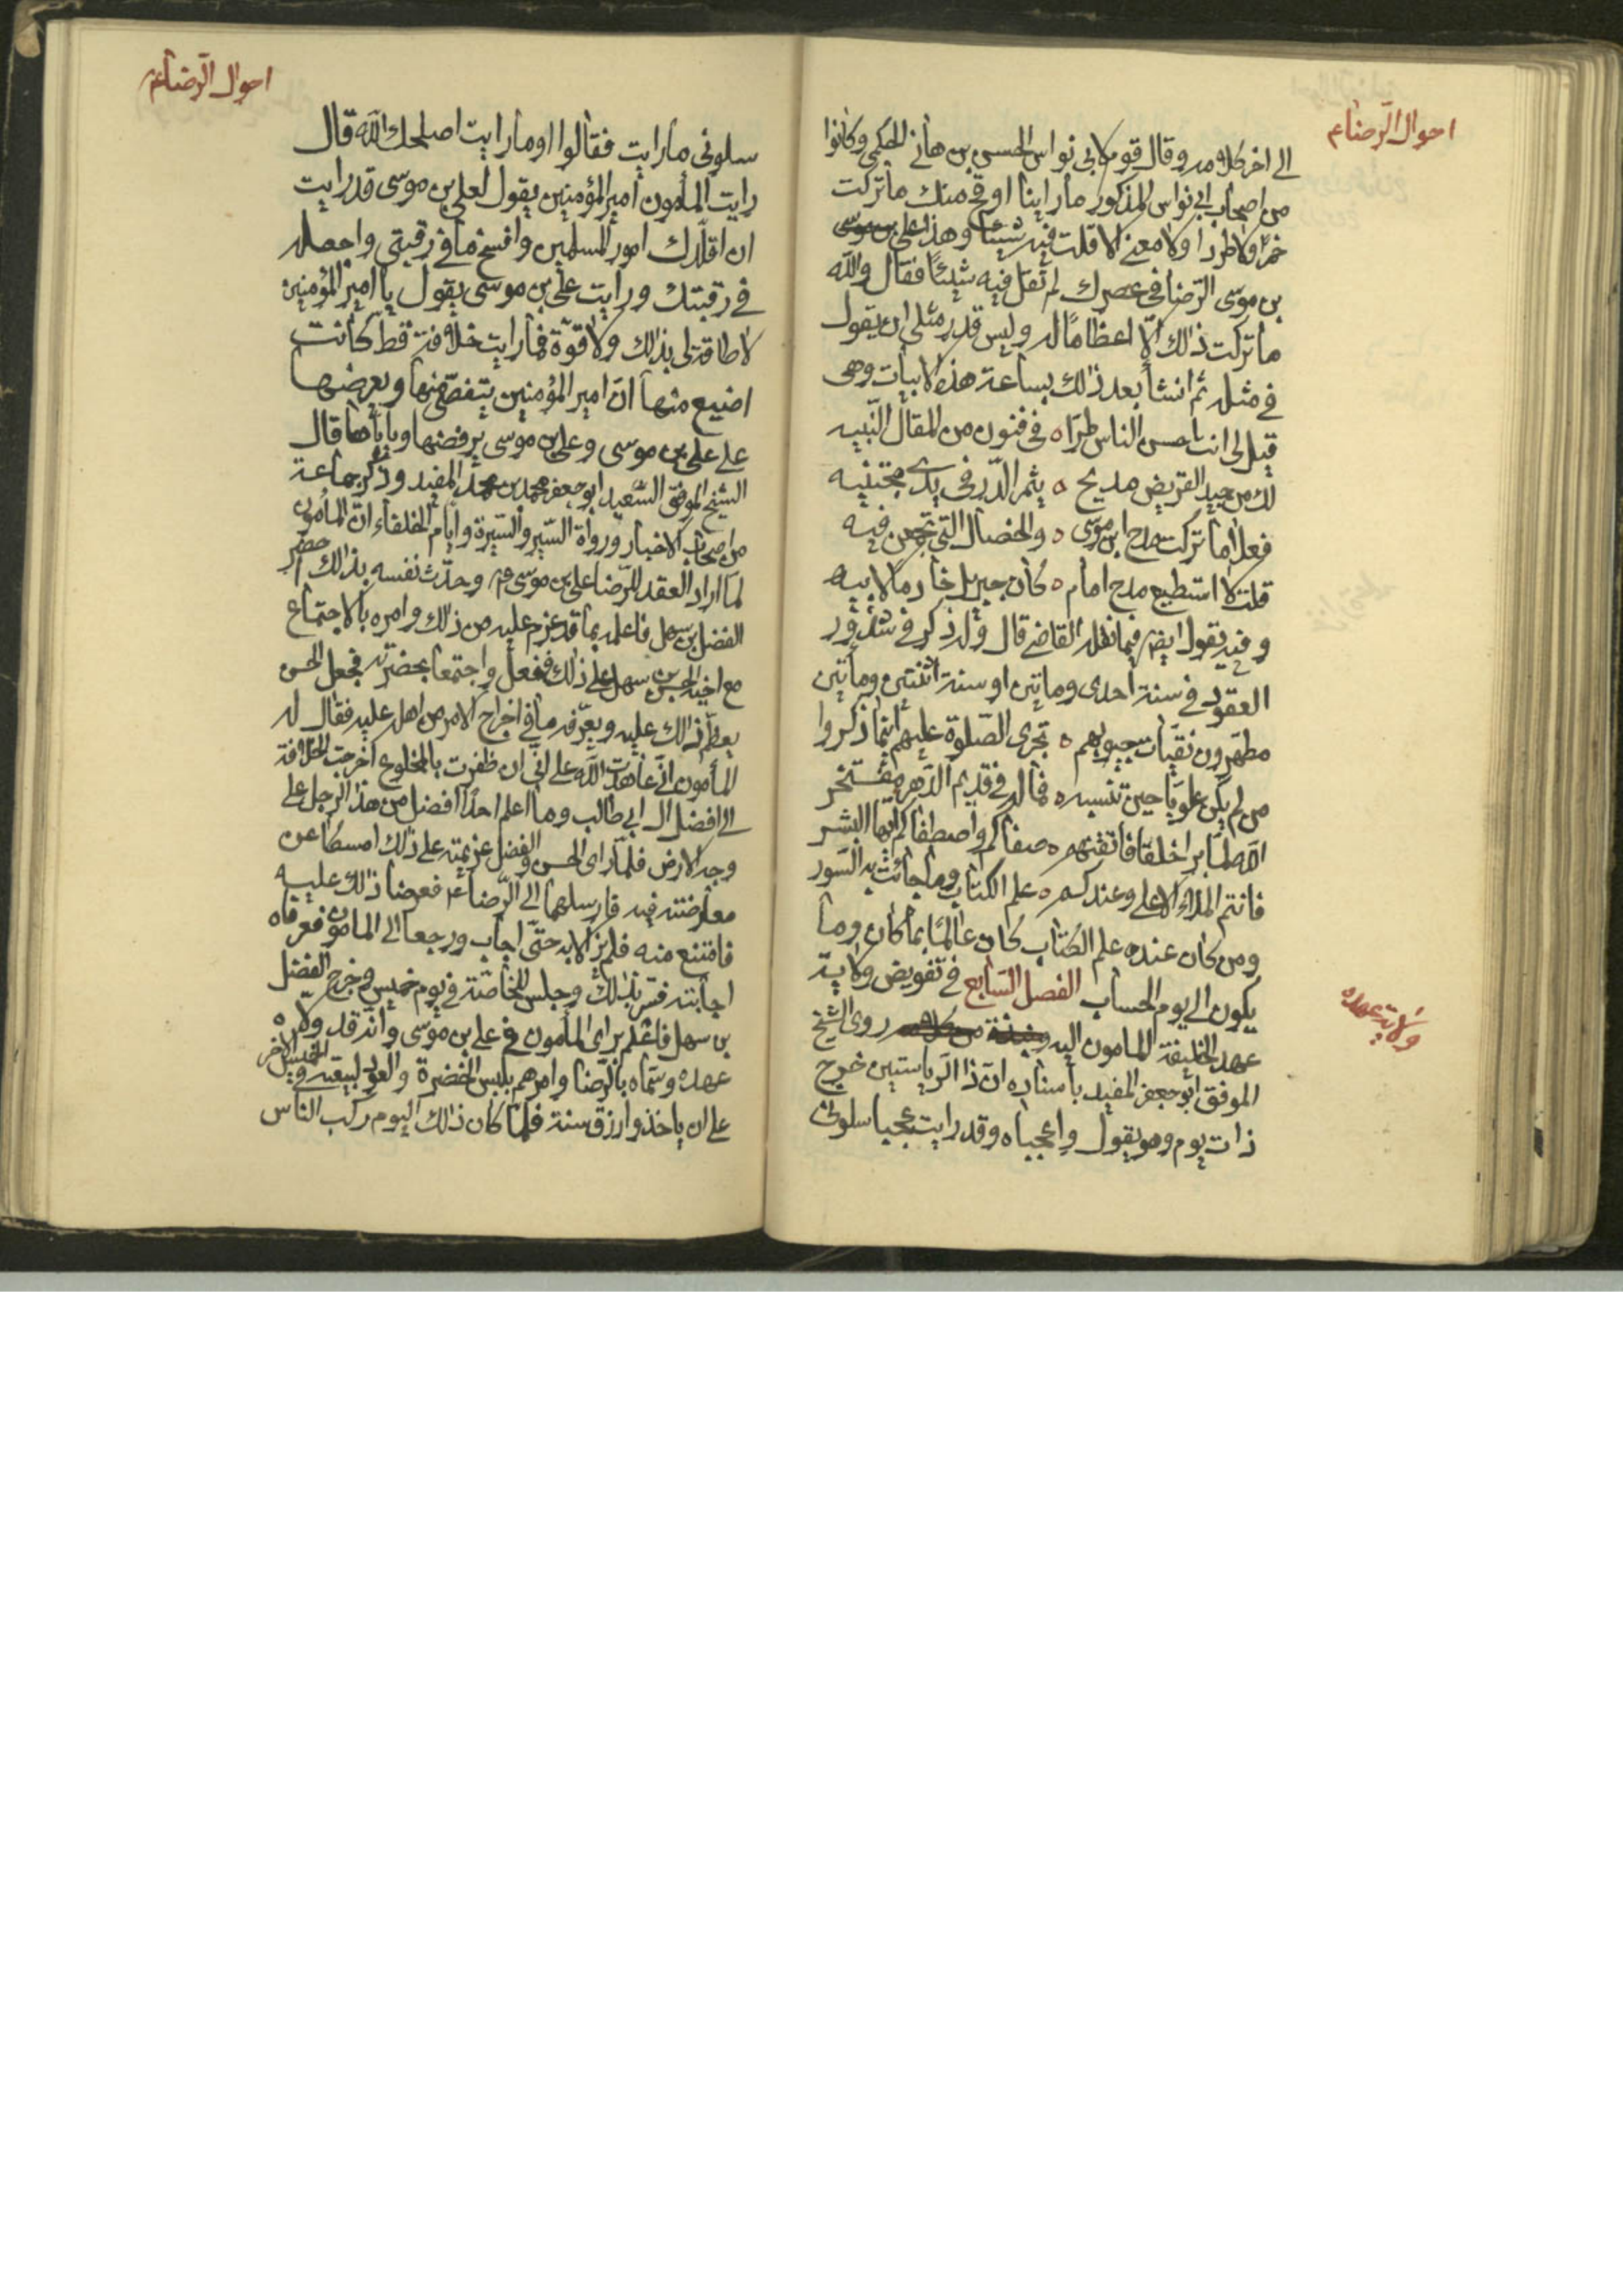 احوال الرضاء ع
الى اخر كلامه وقال قوم لابى نواس الحسن بن هانى الحكمى وكانوا
من اصحاب ابى نواس المذكور ما راينا اوقح منك ما تركت
خمرا ولا طردا ولا معنى الا قلت فيه شيئا وهذا على بن موسى
بن موسى الرّضا فى عصرك لم تقل فيه شيئًا فقال والله
ما تركت ذلك الّا اعظامًا له وليس قدر مثلى ان يقول
فى مثله ثم انشا بعد ذلك بساعة هذه الابيات وهى
قيل لى انت احسن الناس طرًّا ه فى فنون من المقال النّبيه
لك من جيد القريض مديح ه يثمر الدّر فى يدى مجتنيه
فعلى ما تركت مدح ابن موسى ه والخصال التى تجمعن فيه
قلت لا استطيع مدح امام ه كان جبريل خادما لابيه
وفيه يقول ايضا فيما نقله القاضى قال وله ذكر فى شذور
العقود فى سنة احدى وماتين او سنة اثنتين وماتين
مطهّرون نقيات جيوبهم ه تجرى الصّلوة عليهم اينما ذكروا
من لم يكن علويّا حين تنسبه ه فما له فى قديم الدّهر مفتخر
الله لمّا برا خلقا فاتقنهم ه صفاكم واصطفاكم ايّها البشر
فانتم الملاء الاعلى وعندكم ه علم الكتاب وما جائت به السّور
ومن كان عنده علم الكتاب كان عالمًا بما كان وما
يكون الى يوم الحساب الفصل السّابع فى تفويض ولاية
عهد الخليفة المامون اليه روى الشيخ
الموفق ابو جعفر المفيد باسناده انّ ذا الرّياستين خرج
ذات يوم وهو يقول واعجباه وقد رايت عجبا سلونى
ولاية عهده
احوال الرضاء ع
سلونى ما رايت فقالوا او ما رايت اصلحك الله قال
رايت المأمون امير المؤمنين يقول لعلى بن موسى قد رايت
ان اقلّدك امور المسلمين وافسخ ما فى رقبتى واجعله
فى رقبتك ورايت على بن موسى يقول يا امير المؤمنين
لا طاقة لى بذلك ولا قوّة فما رايت خلافة قط كانت
اضيع منها انّ امير المؤمنين يتفصّى منها ويعرضها
على على بن موسى وعلى بن موسى يرفضها ويأباها قال
الشيخ الموفق السّعيد ابو جعفر محمد بن محمد المفيد وذكر جماعة
من اصحاب الاخبار ورواة السّير والسّيرة وايّام الخلفاء انّ المأمون
لمّا اراد العقد للرّضا على بن موسى وحدّث نفسه بذلك احضر
الفضل بن سهل فاعلمه بما قد عزم عليه من ذلك وامره بالاجتماع
مع اخيه الحسن بن سهل على ذلك ففعل واجتمعا بحضرته فجعل الحسن
يعظّم ذلك عليه ويعرّفه ما فى اخراج الامر من اهله عليه فقال له
المأمون انّى عاهدت الله على انّى ان ظفرت بالمخلوع اخرجت الخلافة
الى افضل ال ابى طالب وما اعلم احدًا افضل من هذا الرجل على
وجه الارض فلمّا راى الحسن والفضل عزيمته على ذلك امسكا عن
معارضته فيه فارسلهما الى الرّضا ع فعرضا ذلك عليه
فامتنع منه فلم يزالا به حتّى اجاب ورجعا الى المامون فعرفاه
اجابته فسّر بذلك وجلس للخاصّة فى يوم خميس وخرج الفضل
بن سهل فاعلم براى المأمون فى على بن موسى وانه قد ولاه
عهده وسمّاه بالرّضا وامرهم بلبس الخضرة والعود لبيعته فى الخميس الاخر
على ان ياخذوا رزق سنة فلمّا كان ذلك اليوم ركب الناس